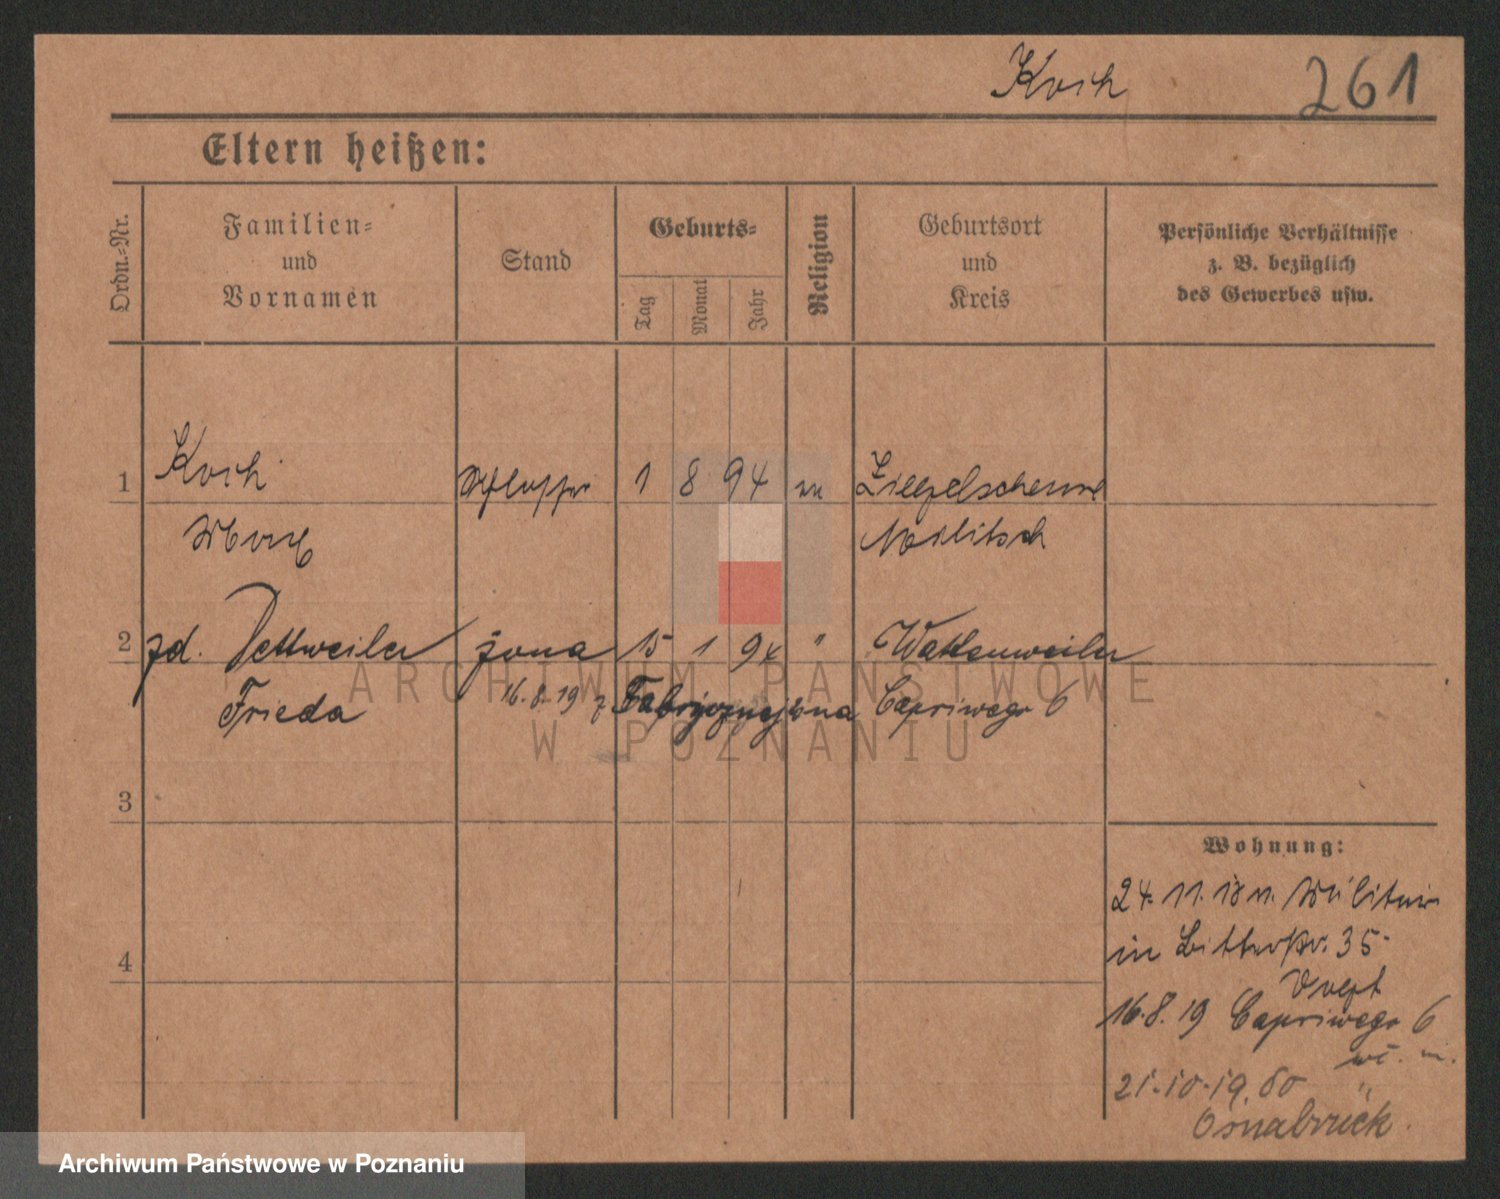 Koch 261
Eltern heißen:
Ordn.-Nr.
Familien-
und
Vornamen
Stand
Geburts-
Tag
Monat
Jahr
Religion
Geburtsort
und
Kreis
Persönliche Verhältnisse
z. B. bezüglich
des Gewerbes usw.
1 Koch Schlosser 1 8 94
Militsch
2 zd. Dettweiler żona 15 1 94 " Wattenweiler
Frieda 16.8.19 z Fabrycznej Capriwego 6
ARCHIWUM PAŃSTWOWE
W POZNANIU
3
Wohnung:
24. 11. 18 v. Militär
in Bitterstr. 35
4
16.8.19 Capriwego 6
21.10.19.
Osnabrück
Archiwum Państwowe w Poznaniu